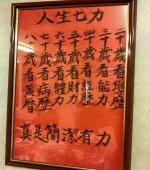 人生七力
二十歲看學歷
三十歲看能力
四十歲看經歷
五十歲看財力
六十歲看體力
七十歲看病歷
八十歲看黃曆
真是簡潔有力